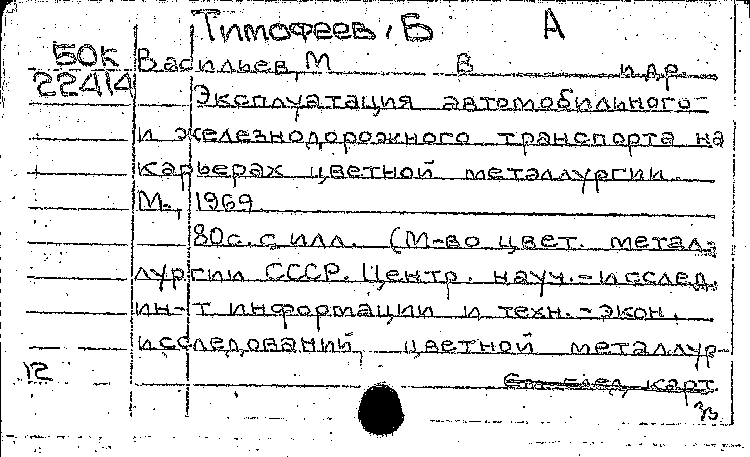 Тимофеев, Б А
БОК Васильев, М В и др.
22414
Эксплуатация автомобильного
и железнодорожного транспорта на
карьерах цветной металлургии
М., 1969
80с. с илл. (М-во цвет. метал-
лургии СССР. Центр. науч.-исслед.
ин-т информации и техн.-экон.
исследований цветной металлур-
12 См. след. карт.